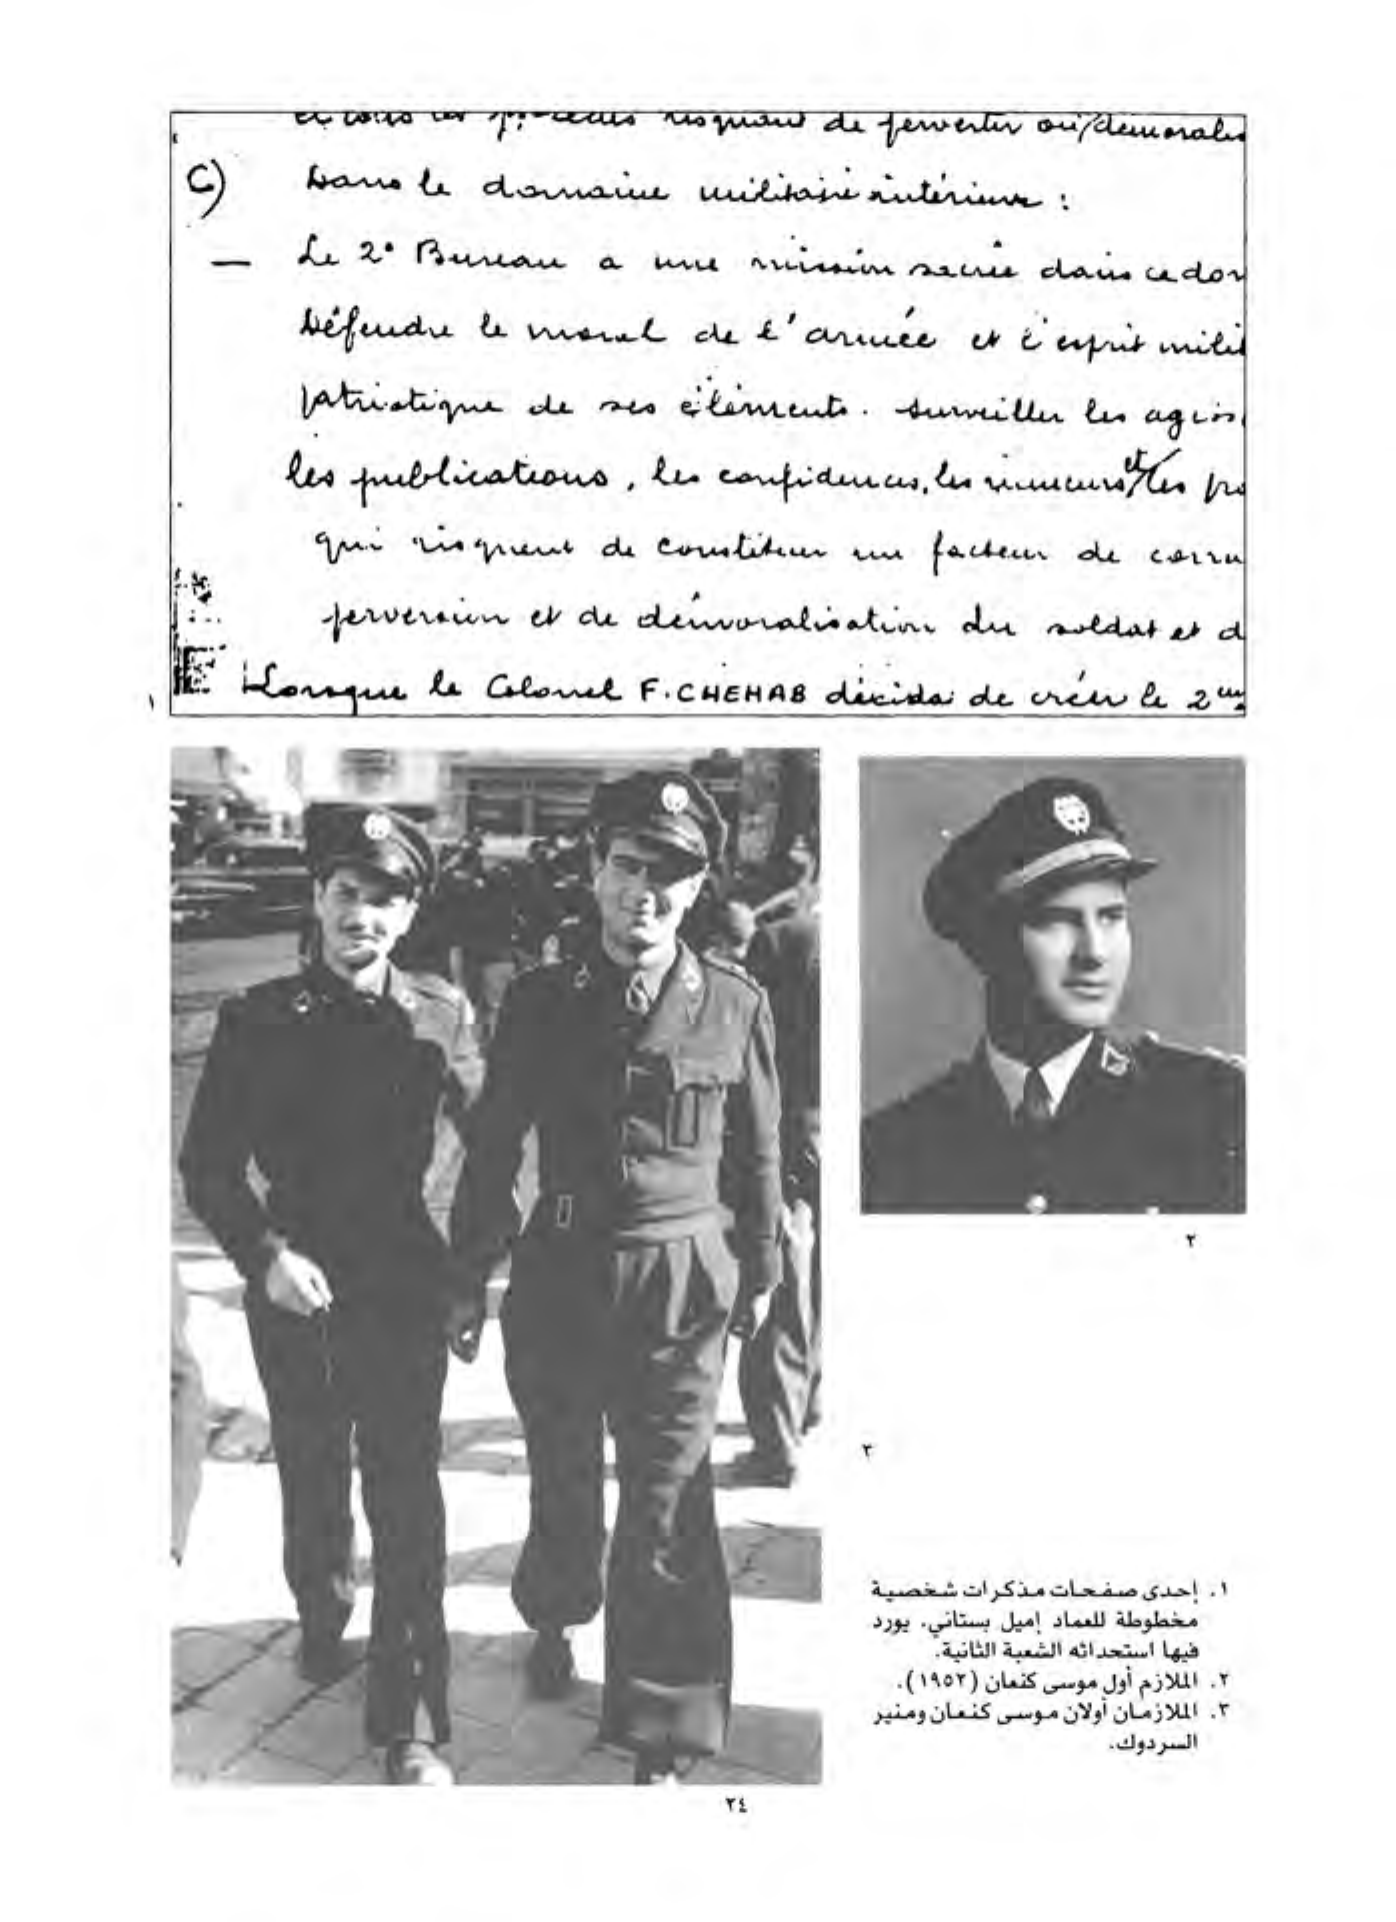 risquant de pervertir ou/démorales
C) Dans le domaine militaire intérieur :
— Le 2° Bureau a une mission sacrée dans ce dom
Défendre le moral de l'armée et l'esprit milit
patriotique de ses éléments. Surveiller les agiss
les publications, les confidences, les rumeurs et/les pro
qui risquent de constituer un facteur de corru
perversion et de démoralisation du soldat et d
Lorsque le Colonel F. CHEHAB décida de créer le 2
١
٢
٣
١. إحدى صفحات مذكرات شخصية
مخطوطة للعماد إميل بستاني، يورد
فيها استحداثه الشعبة الثانية.
٢. الملازم أول موسى كنعان (١٩٥٢).
٣. الملازمان أولان موسى كنعان ومنير
السردوك.
٢٤